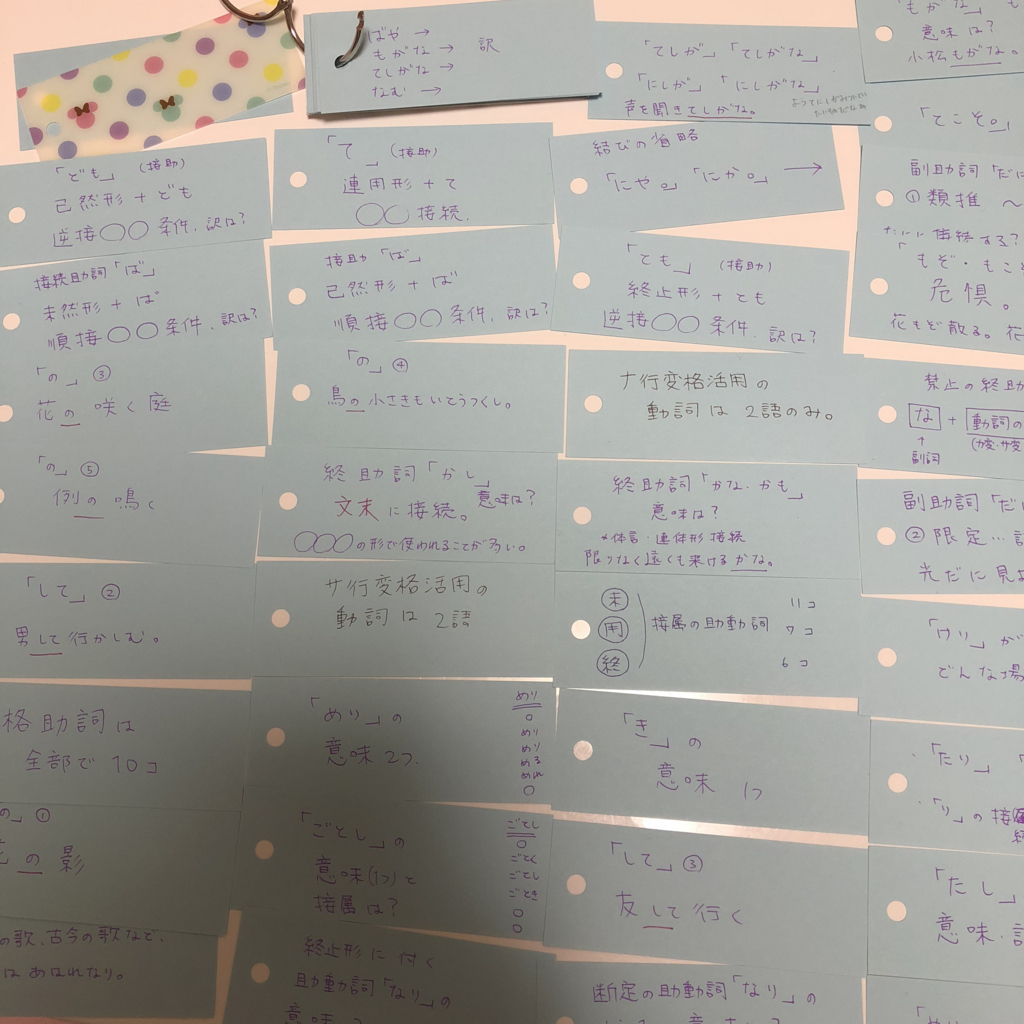 ばや →
もがな → 訳
てしがな →
なむ →
「てしが」「てしがな」
「にしが」「にしがな」
声を聞きてしがな。
意味は?
小松もがな。
「てこそ。」
「ども」(接助)
已然形+ども
逆接○○条件、訳は?
「て」(接助)
連用形+て
○○接続。
結びの省略
「にや。」「にか。」→
副助詞「だに
①類推 ～
接続助詞「ば」
未然形+ば
順接○○条件、訳は?
接助「ば」
已然形+ば
順接○○条件、訳は?
「とも」(接助)
終止形+とも
逆接○○条件、訳は?
接続する?
「もぞ・もこ
危惧。
花もぞ散る。花
「の」③
花の咲く庭
「の」④
鳥の小さきもいとうつくし。
ナ行変格活用の
動詞は2語のみ。
禁止の終助
な+動詞の
↑
副詞
(カ変・サ変
「の」⑤
例の鳴く
終助詞「かし」
文末に接続。意味は?
○○○の形で使われることが多い。
終助詞「かな・かも」
意味は?
*体言・連体形接続
限りなく遠くも来けるかな。
副助詞「だに
②限定…
光だに見
「して」②
男して行かしむ。
サ行変格活用の
動詞は2語
未
用
終
接属の助動詞
11コ
7コ
6コ
「けり」が
どんな場
格助詞は
全部で10コ
「めり」の
意味2つ.
めり
○
めり
めり
める
めれ
○
「き」の
意味1つ
「たり」
「り」の接属
の」①
の影
「ごとし」の
意味(1つ)と
接属は?
ごとし
○
ごとく
ごとし
ごとき
○
○
「して」③
友して行く
「たし」
意味・
の歌、古今の歌など、
はあはれなり。
終止形に付く
助動詞「なり」の
断定の助動詞「なり」の